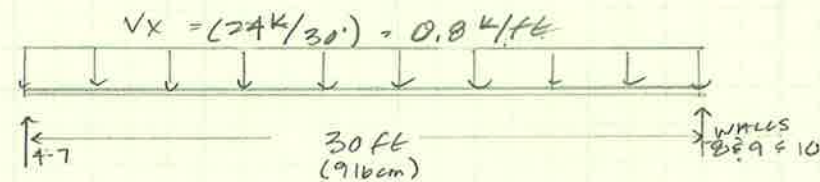 Vx = (24k/30') = 0.8 k/ft
4-7
30 ft
(916cm)
WALLS
8 & 9 & 10